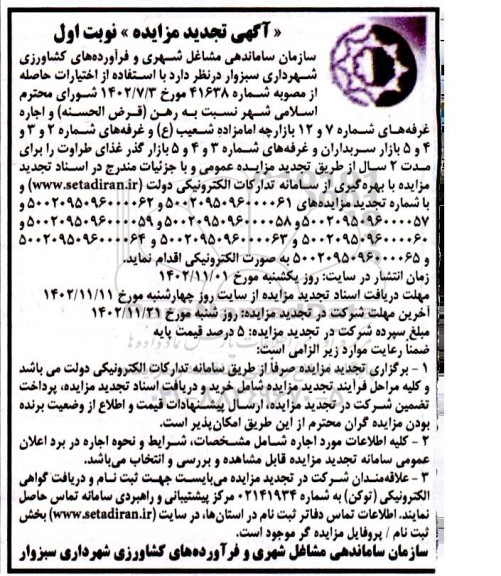 « آگهی تجدید مزایده » نوبت اول
سازمان ساماندهی مشاغل شهری و فرآورده‌های کشاورزی
شهرداری سبزوار درنظر دارد با استفاده از اختیارات حاصله
از مصوبه شماره ۴۱۶۳۸ مورخ ۱۴۰۲/۷/۳ شورای محترم
اسلامی شهر نسبت به رهن (قرض الحسنه) و اجاره
غرفه‌های شماره ۷ و ۱۲ بازارچه امامزاده شعیب (ع) و غرفه‌های شماره ۲ و ۳ و
۴ و ۵ بازار سربداران و غرفه‌های شماره ۳ و ۴ و ۵ بازار گذر غذای طراوت را برای
مدت ۲ سال از طریق تجدید مزایده عمومی و با جزئیات مندرج در اسناد تجدید
مزایده با بهره‌گیری از سامانه تدارکات الکترونیکی دولت (www.setadiran.ir) و
با شماره تجدید مزایده‌های ۵۰۰۲۰۹۵۰۹۶۰۰۰۰۶۱ و ۵۰۰۲۰۹۵۰۹۶۰۰۰۰۶۲ و
۵۰۰۲۰۹۵۰۹۶۰۰۰۰۵۷ و ۵۰۰۲۰۹۵۰۹۶۰۰۰۰۵۸ و ۵۰۰۲۰۹۵۰۹۶۰۰۰۰۵۹ و
۵۰۰۲۰۹۵۰۹۶۰۰۰۰۶۰ و ۵۰۰۲۰۹۵۰۹۶۰۰۰۰۶۳ و ۵۰۰۲۰۹۵۰۹۶۰۰۰۰۶۴
و ۵۰۰۲۰۹۵۰۹۶۰۰۰۰۶۵ به صورت الکترونیکی اقدام نماید.
زمان انتشار در سایت: روز یکشنبه مورخ ۱۴۰۲/۱۱/۰۱
مهلت دریافت اسناد تجدید مزایده از سایت روز چهارشنبه مورخ ۱۴۰۲/۱۱/۱۱
آخرین مهلت شرکت در تجدید مزایده: روز شنبه مورخ ۱۴۰۲/۱۱/۲۱
مبلغ سپرده شرکت در تجدید مزایده: ۵ درصد قیمت پایه
ضمناً رعایت موارد زیر الزامی است:
۱ - برگزاری تجدید مزایده صرفاً از طریق سامانه تدارکات الکترونیکی دولت می باشد
و کلیه مراحل فرآیند تجدید مزایده شامل خرید و دریافت اسناد تجدید مزایده، پرداخت
تضمین شرکت در تجدید مزایده، ارسال پیشنهادات قیمت و اطلاع از وضعیت برنده
بودن مزایده گران محترم از این طریق امکان‌پذیر است.
۲ - کلیه اطلاعات مورد اجاره شامل مشخصات، شرایط و نحوه اجاره در برد اعلان
عمومی سامانه تجدید مزایده قابل مشاهده و بررسی و انتخاب می‌باشد.
۳ - علاقه‌مندان شرکت در تجدید مزایده می‌بایست جهت ثبت نام و دریافت گواهی
الکترونیکی (توکن) به شماره ۰۲۱۴۱۹۳۴ مرکز پشتیبانی و راهبردی سامانه تماس حاصل
نمایند. اطلاعات تماس دفاتر ثبت نام در استان‌ها، در سایت (www.setadiran.ir) بخش
ثبت نام / پروفایل مزایده گر موجود است.
سازمان ساماندهی مشاغل شهری و فرآورده‌های کشاورزی شهرداری سبزوار